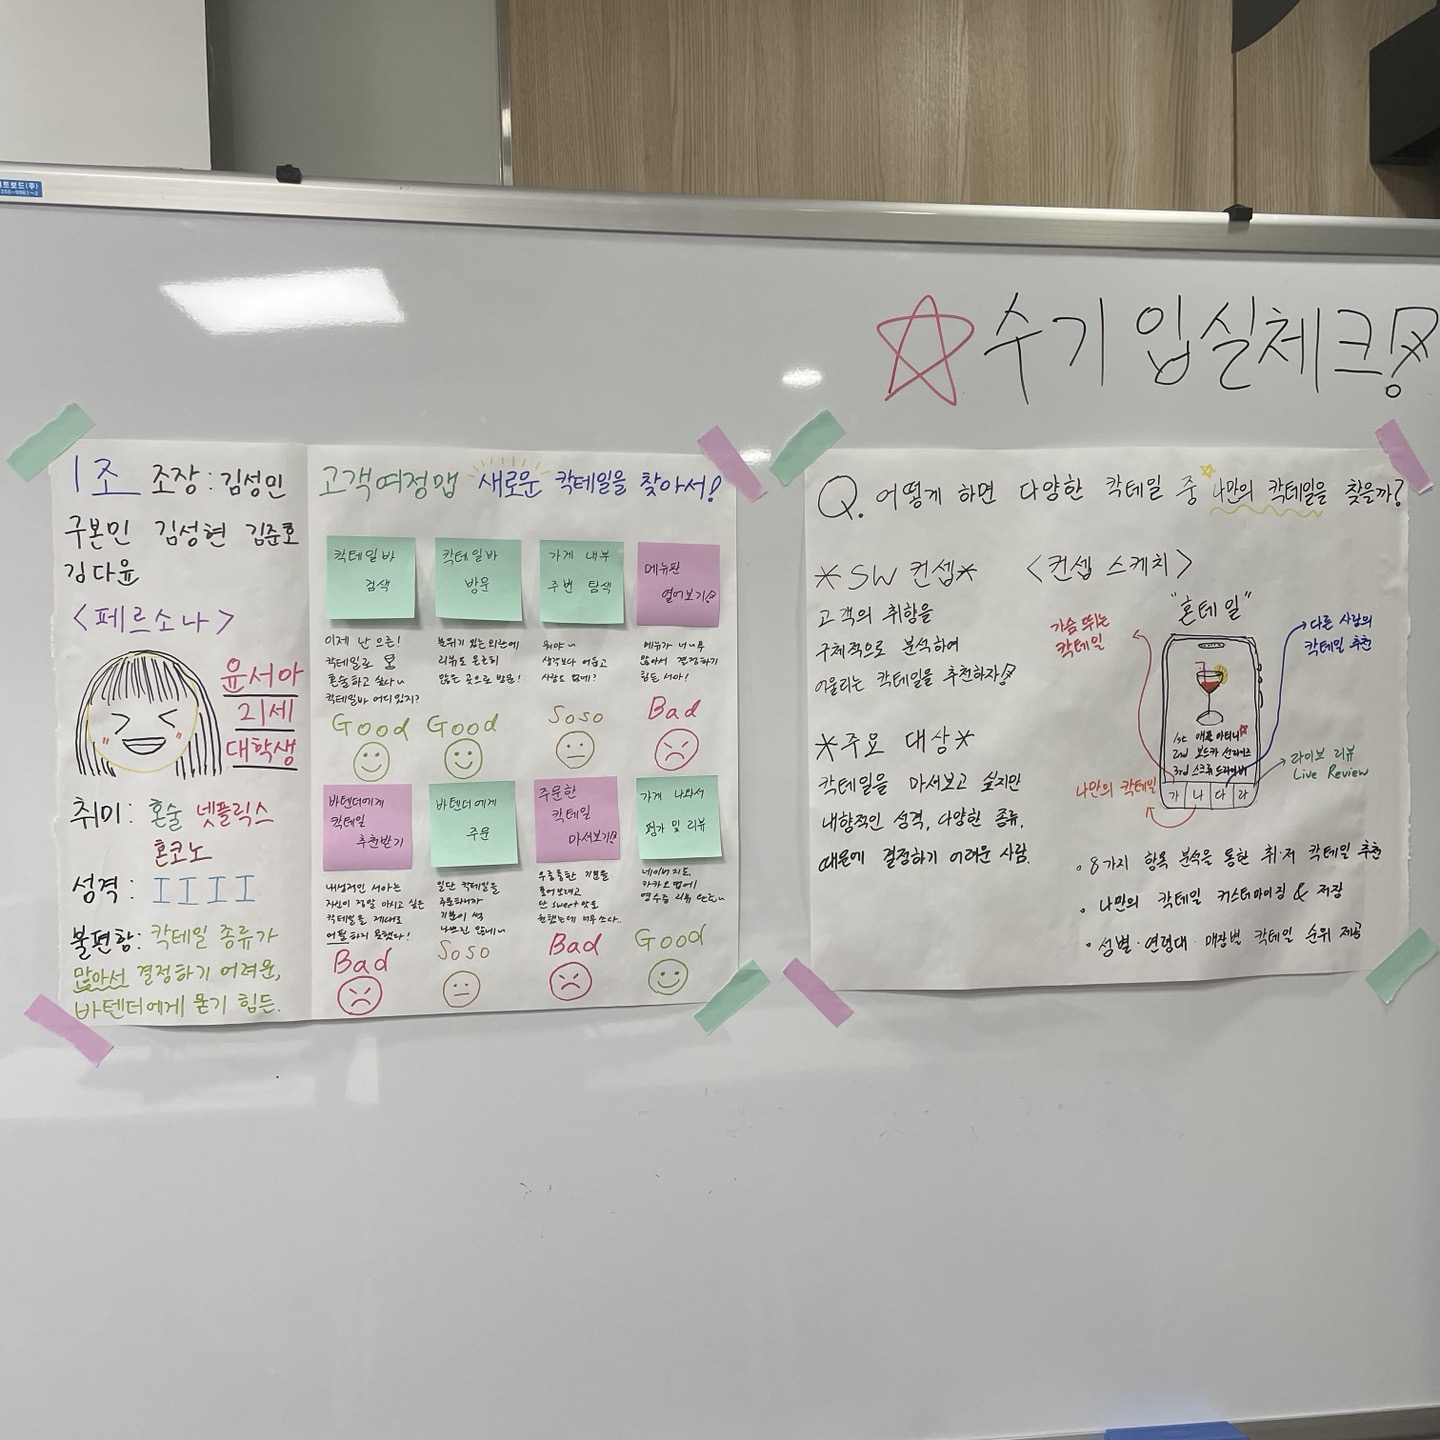 ☆ 수기 입실체크!
1조 조장 : 김성인
구본민 김성현 김준호
김다윤
<페르소나>
윤서아
21세
대학생
취미 : 혼술 넷플릭스
혼코노
성격 : I I I I
불편함 : 칵테일 종류가
많아서 결정하기 어려운,
바텐더에게 묻기 힘든.
고객여정맵 새로운 칵테일을 찾아서!
칵테일바
검색
이제 난 으른!
칵테일로
혼술하고 싶다~
칵테일바 어디있지?
Good
칵테일바
방문
분위기 있는 외관에
리뷰도 은근히
많은 곳으로 방문!
Good
가게 내부
주변 탐색
뭐야~
생각보다 어둡고
사람도 없네?
Soso
메뉴판
열어보기
메뉴가 너~무
많아서 결정하기
힘든 서아!
Bad
바텐더에게
칵테일
추천받기
내성적인 서아는
자신이 정말 마시고 싶은
칵테일을 제대로
어필하지 못했다!
Bad
바텐더에게
주문
일단 칵테일을
주문하니까
기분이 썩
나쁘진 않네~
Soso
주문한
칵테일
마셔보기
우중충한 기분을
단 sweet 맛을
원했는데 너무 쓰다..
Bad
가게 나와서
평가 및 리뷰
네이버 지도,
카카오맵에
영수증 리뷰
Good
Q. 어떻게 하면 다양한 칵테일 중 나만의 칵테일을 찾을까?
*SW 컨셉*
고객의 취향을
구체적으로 분석하여
어울리는 칵테일을 추천하자!
*주요 대상*
칵테일을 마셔보고 싶지만
내향적인 성격, 다양한 종류,
때문에 결정하기 어려운 사람.
<컨셉 스케치>
"혼테일"
가슴 뛰는
칵테일
다른 사람의
칵테일 추천
1st 애플 마티니
2nd 보드카 선라이즈
3rd 스크류 드라이버
가 나 다 라
나만의 칵테일
라이브 리뷰
Live Review
• 8가지 항목 분석을 통한 취·저 칵테일 추천
• 나만의 칵테일 커스터마이징 & 저장
• 성별·연령대·매장별 칵테일 순위 제공